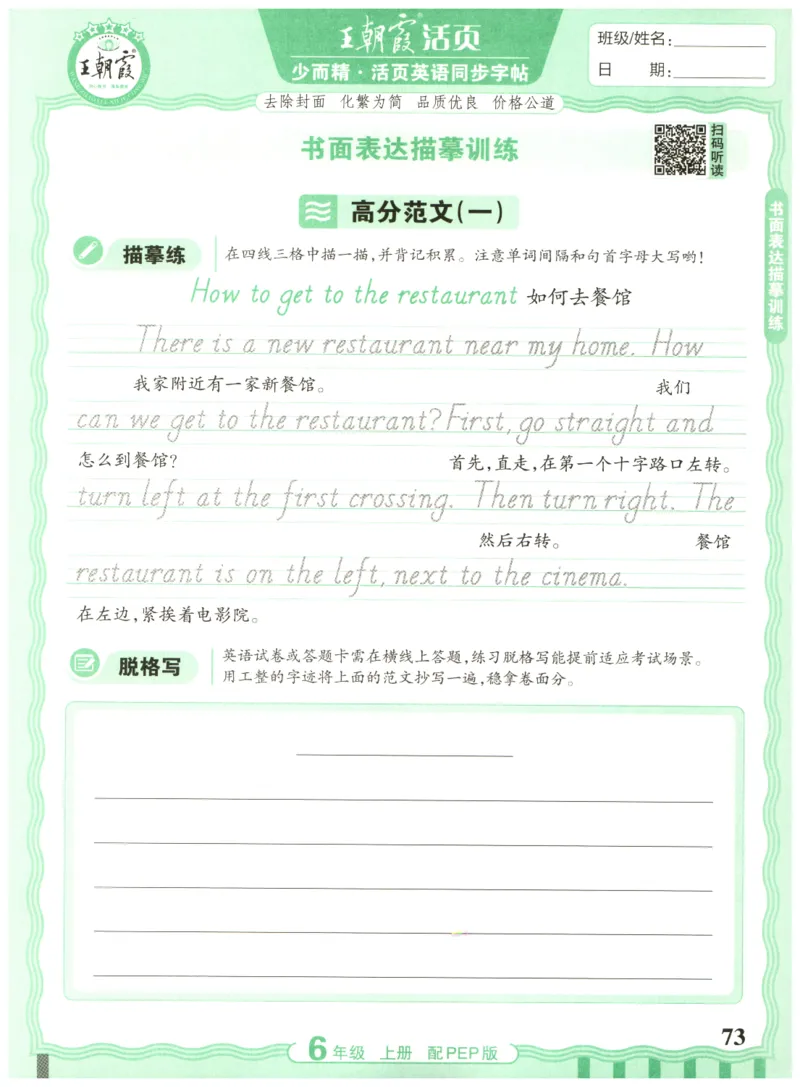 王朝霞
王朝霞®活页
少而精·活页英语同步字帖
班级/姓名:
日 期:
去除封面 化繁为简 品质优良 价格公道
书面表达描摹训练
扫码听读
高分范文(一)
书面表达描摹训练
描摹练
在四线三格中描一描,并背记积累。注意单词间隔和句首字母大写哟!
How to get to the restaurant 如何去餐馆
There is a new restaurant near my home. How
我家附近有一家新餐馆。 我们
can we get to the restaurant? First, go straight and
怎么到餐馆? 首先,直走,在第一个十字路口左转。
turn left at the first crossing. Then turn right. The
然后右转。 餐馆
restaurant is on the left, next to the cinema.
在左边,紧挨着电影院。
脱格写
英语试卷或答题卡需在横线上答题,练习脱格写能提前适应考试场景。
用工整的字迹将上面的范文抄写一遍,稳拿卷面分。
73
6年级 上册 配PEP版